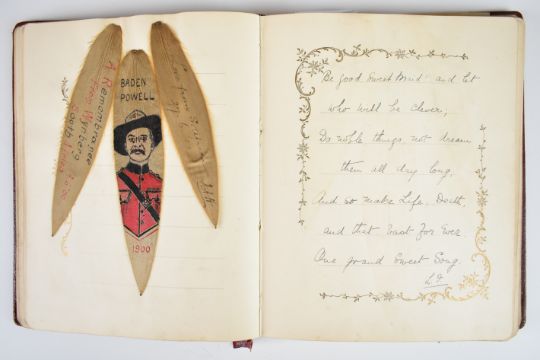 A Remembrance
from Wynberg
South Africa
BADEN
POWELL
1900
Be good Sweet Maid and let
who will be clever,
Do noble things, not dream
them all day long,
And so make Life, Death,
and that Vast For Ever
One grand Sweet Song.